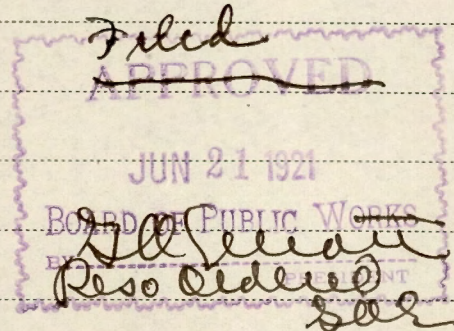 Filed
APPROVED
JUN 21 1921
BOARD OF PUBLIC WORKS
BY
PRESIDENT
Reso Ordered